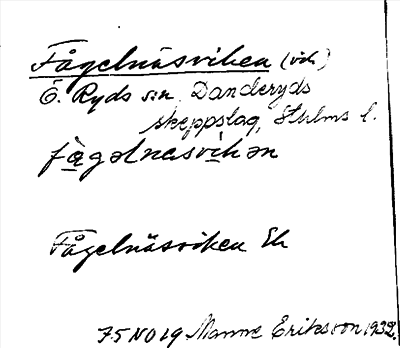 Fågelnäsviken (vik)
Ö. Ryds sn, Danderyds
skeppslag, Sthlms l.
fågəlnasvikən
Fågelnäsviken Ek
75 NO 19 Manne Eriksson 1932.